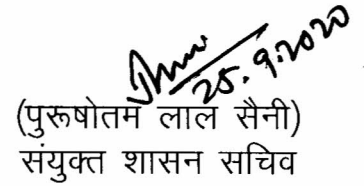 25.9.2020
(पुरूषोतम लाल सैनी)
संयुक्त शासन सचिव